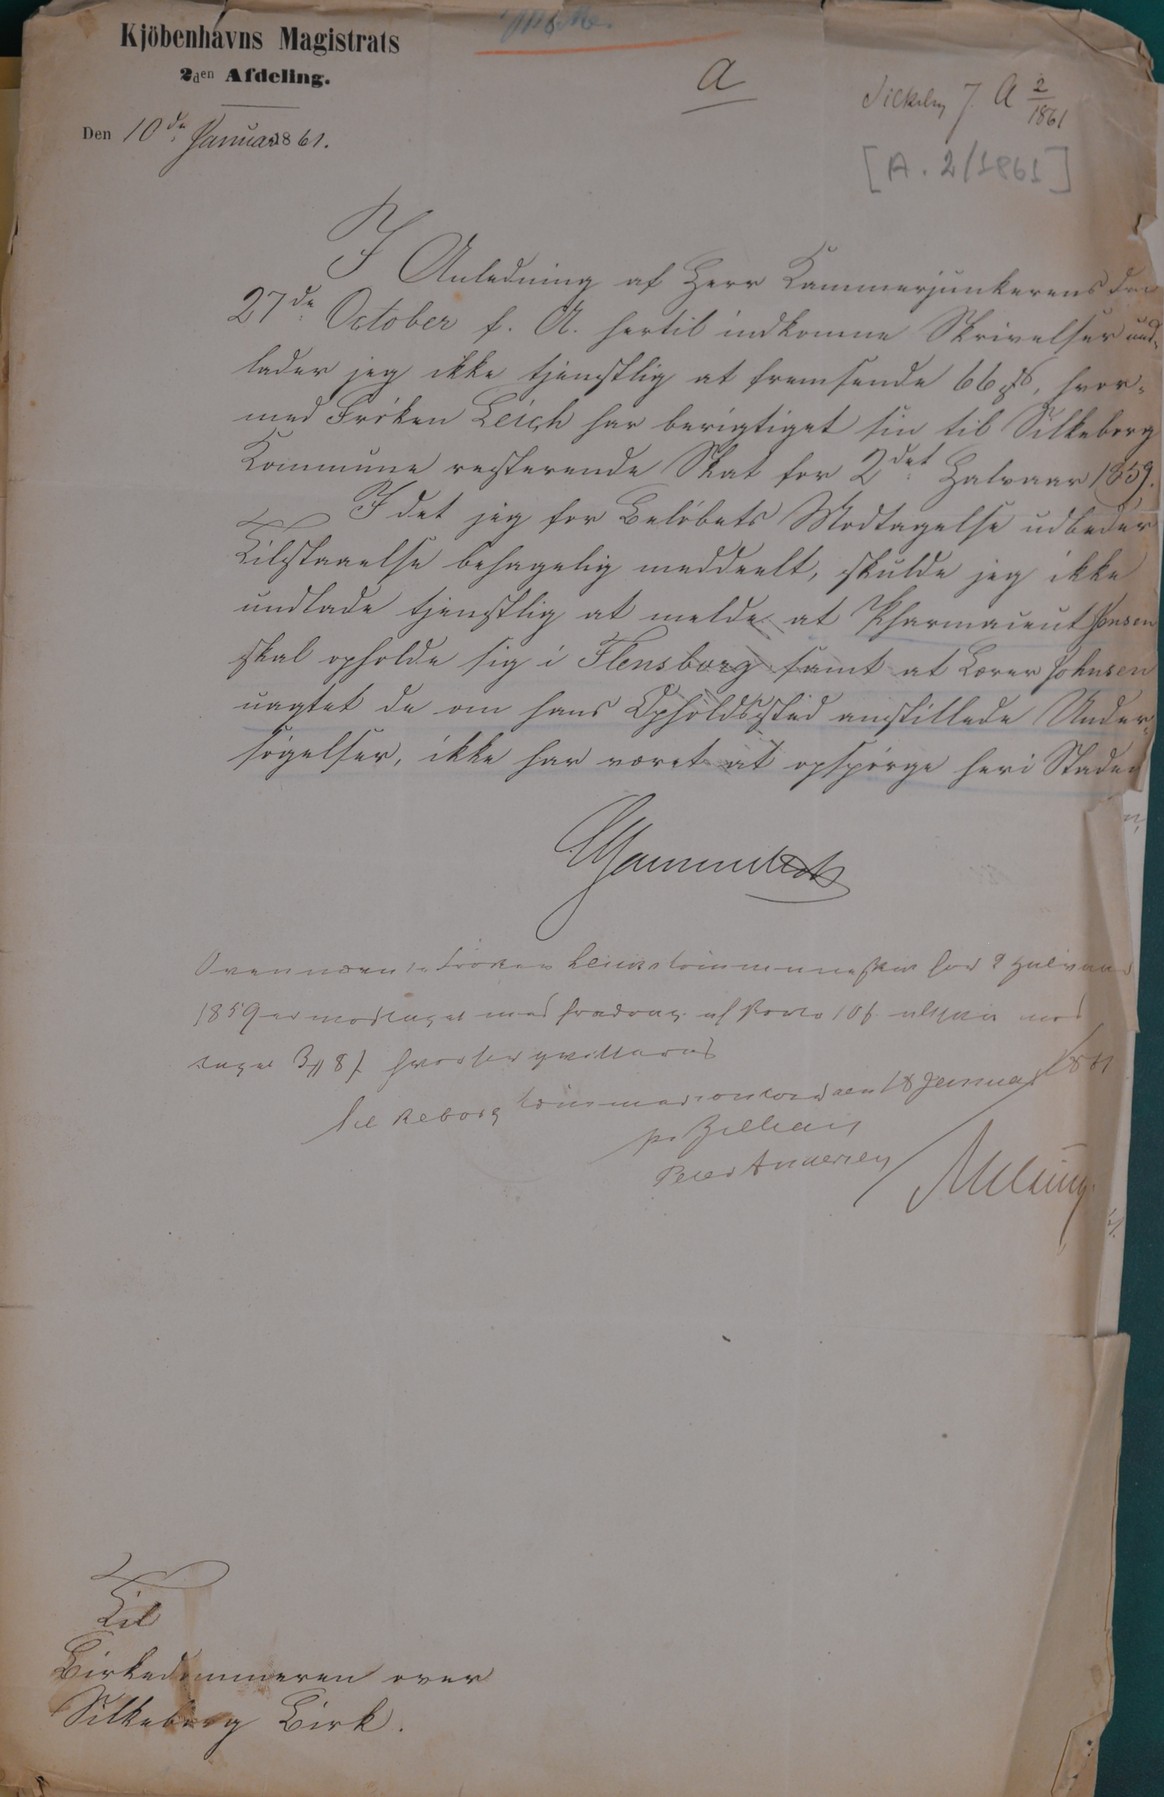 Kjöbenhavns Magistrats
2den Afdeling.
Den 10de Januar 1861.
a
A 2/1861
[A. 2/1861]
I Anledning af Herr Kammerjunkerens
27de October f. A. hertil indkomne Skrivelser und-
lader jeg ikke tjenstlig at fremsende 66 ß, hvor-
med Frøken Leich har berigtiget sin til Silkeborg
Kommune resterende Skat for 2det Halvaar 1859.
Idet jeg for Beløbets Modtagelse udbeder
Tilstaaelse behagelig meddeelt, skulde jeg ikke
undlade tjenstlig at melde at Pharmaceut Jensen
skal opholde sig i Flensborg samt at Lærer Johnsen
uagtet de om hans Opholdssted anstillede Under-
søgelser, ikke har været at opspørge her i Staden
Ovennævnte Frøken Leichs Kommuneskat for 2 Halvaar
1859 er modtaget med Fradrag af Porto 10 ß
hvorfor qvitteres
Silkeborg den 18 Januar 1861
Peter Andersen
Til
Birkedommeren over
Silkeborg Birk.